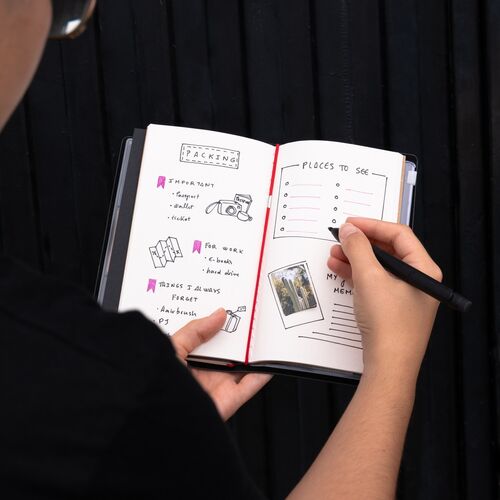 PACKING
IMPORTANT
• Passport
• Wallet
• ticket
FOR WORK
• E-books
• hard drive
THINGS I ALWAYS
FORGET
• Hairbrush
• PJ
PLACES TO SEE
MY
MEM